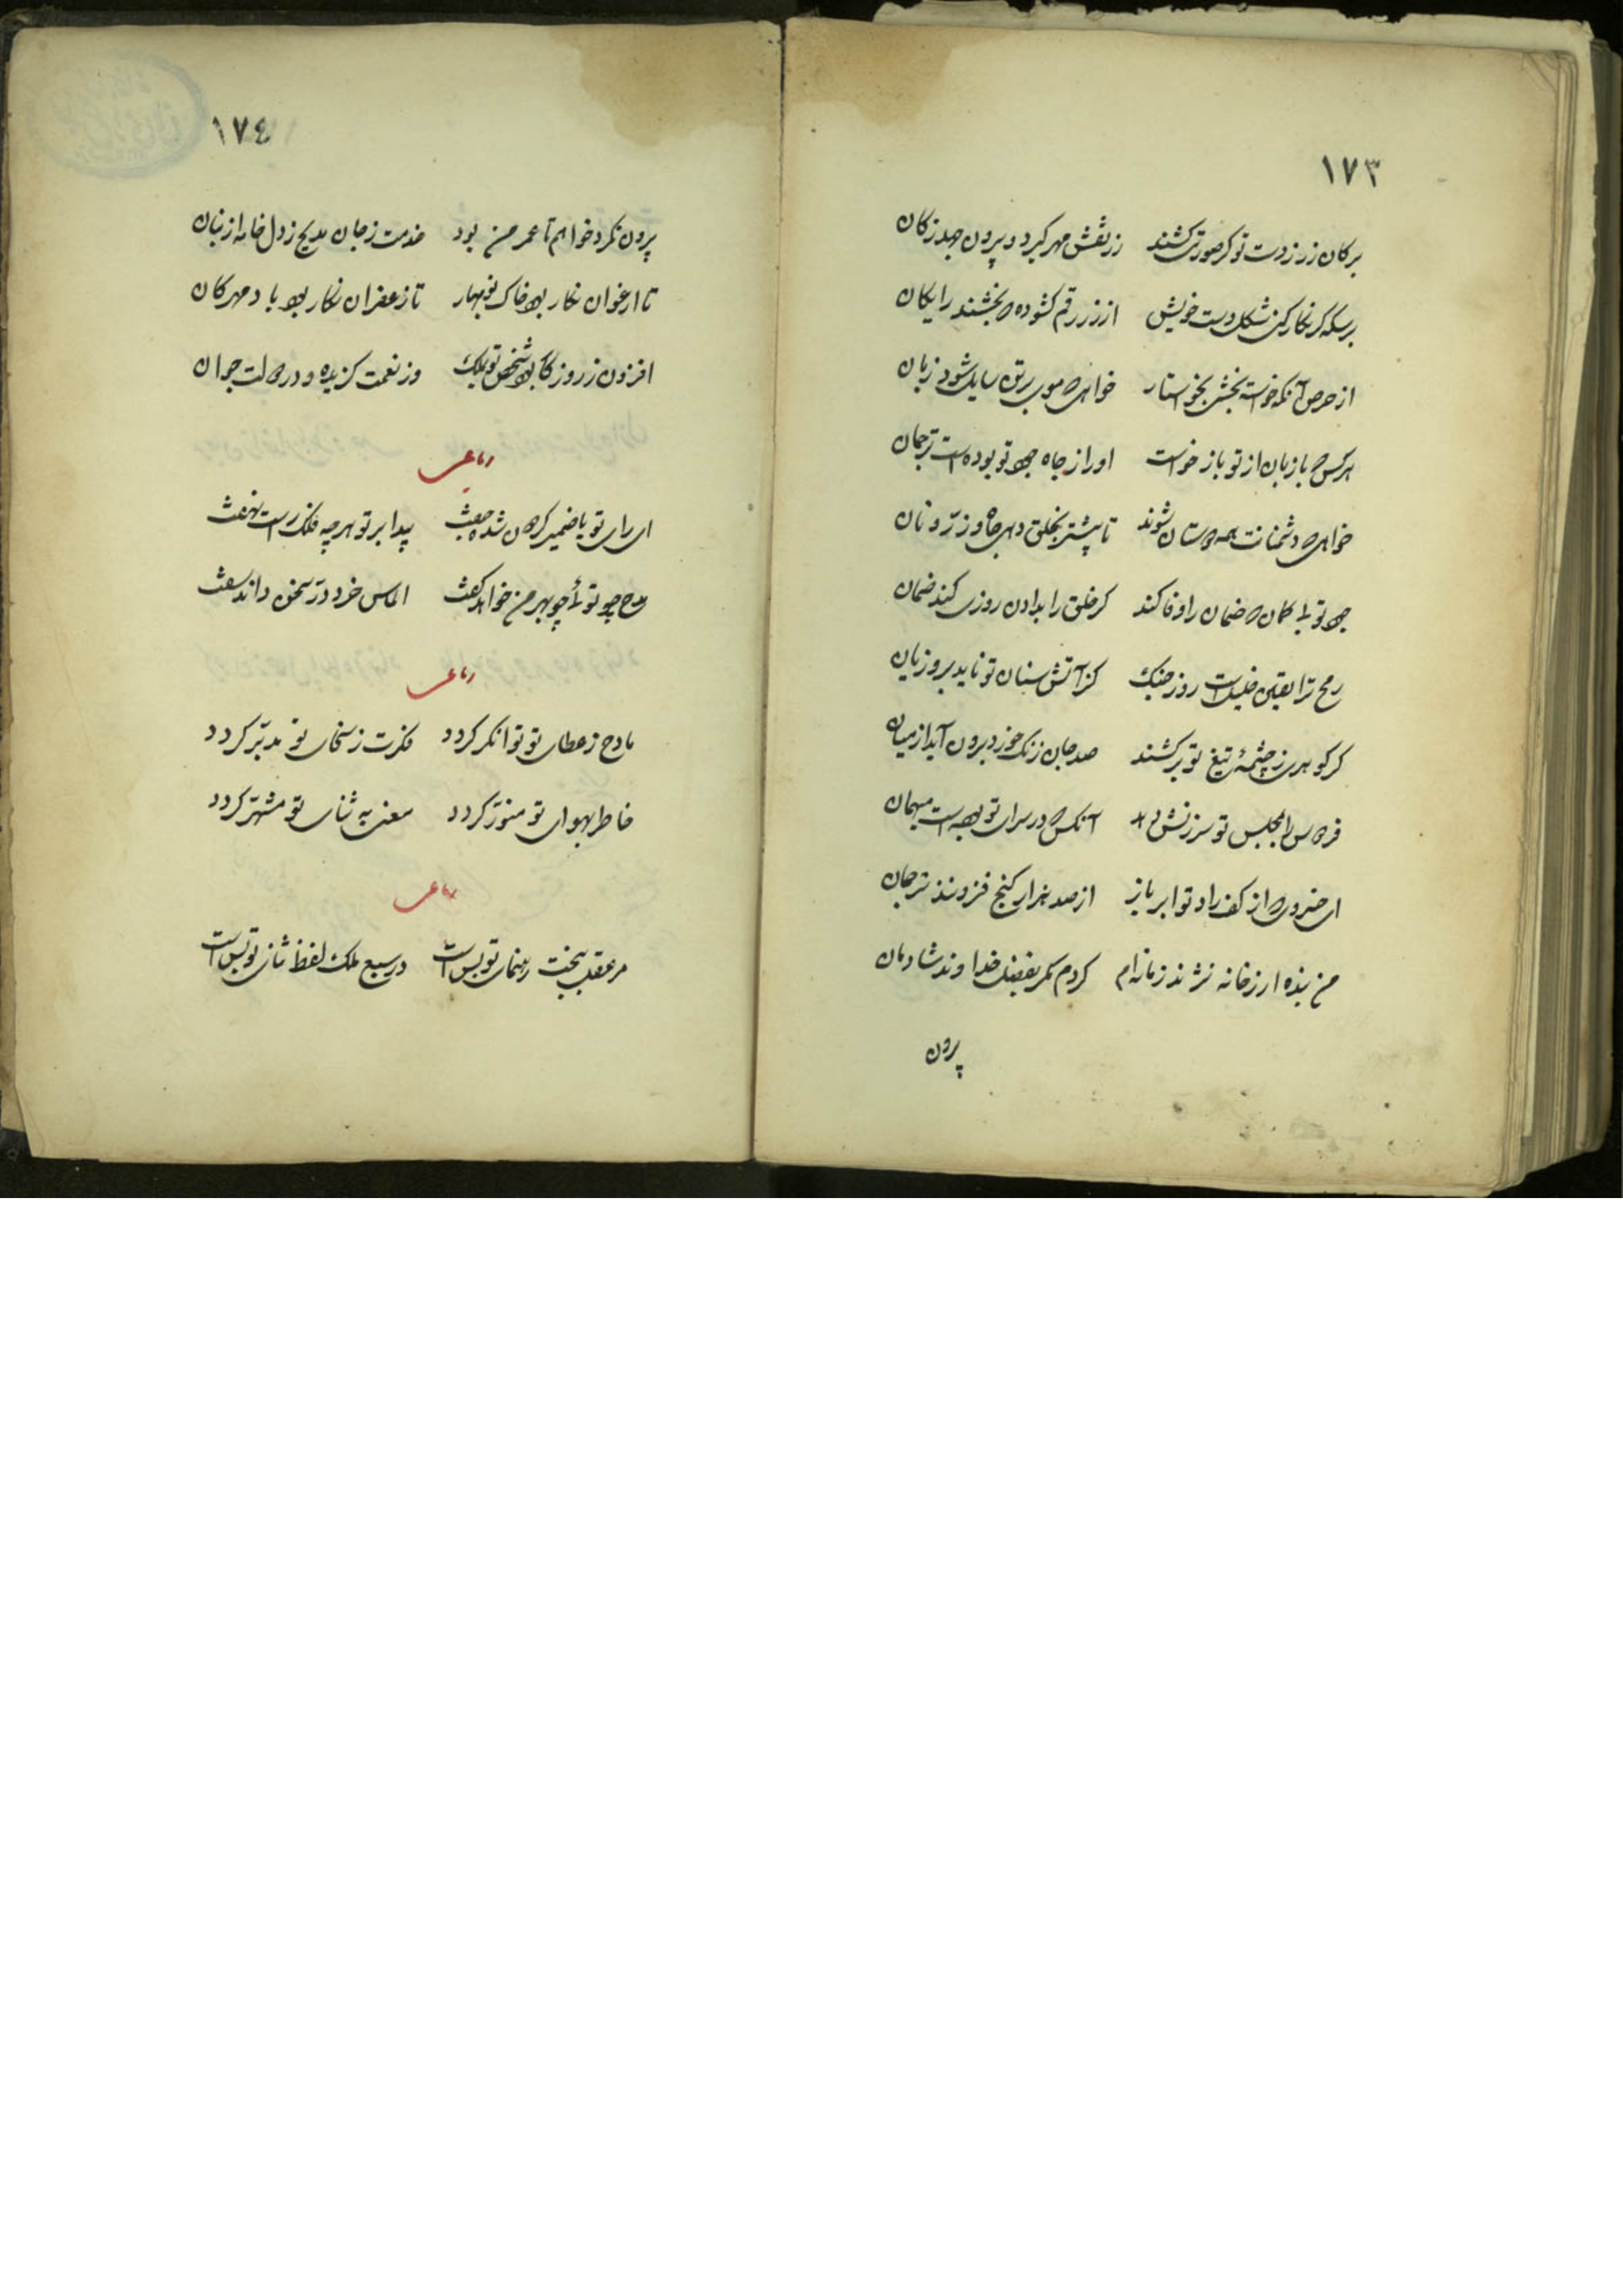 ١٧٣
بر کان زر ز دست تو کر صورتی کشند زر نقش مهر کیرد و بیرون جهد ز کان
بر سکه کر نکار کنی شکل دست خویش از زر رقم کشوده بخشند رایکان
از حرص آنکه خواسته بخشی بخواستار خواهی موی بر تن سایل شود زبان
هر کس با زبان از تو باز خواست او را ز جاه جود تو بوده است ترجمان
خواهی دشمنانت همه دوستان شوند تا بیشتر بخلق دهی جاه و زر و نان
جود تو بی کمان ضمان را وفا کند کر خلق را بدادن روزی کند ضمان
رمح ترا یقین خلیل است روز جنک کز آتش سنان تو ناید برو زیان
کر کوهری ز چشمهٔ تیغ تو بر کشند صد جان زنک خورد برون آید از میان
فردوس را بمجلس تو سرزنش کند آنکس در سرای تو بوده است میهمان
ای خسروی از کف راد تو ابر باز از صد هزار کنج فزونند
من بنده ار ز خانه نژند زمانه‌ام کردم مکر بفضل خداوند شادمان
بیرون
١٧٤
بیرون نکرد خواهم تا عمر من بود خدمت ز جان مدیح ز دل خامه از بنان
تا ارغوان نکار بود خاک نوبهار تا زعفران نکار بود باد مهرکان
افزون ز روزکار بود شخص تو بملک وز نعمت کزیده و در دولت جوان
رباعی
ای رای تو با ضمیر کردون شده جفت پیدا بر تو هر چه فلک راست نهفت
مدح چو توئی چو بهر من خواهد کفت الماس خرد در سخن داند سفت
رباعی
مادح ز عطای تو توانکر کردد فکرت ز سخای تو مدبر کردد
خاطر بهوای تو منور کردد معنی به ثنای تو مشتهر کردد
رباعی
مر عقل ببخت رهنمای تو بس است در سبع ملک لفظ ثنای تو بس است